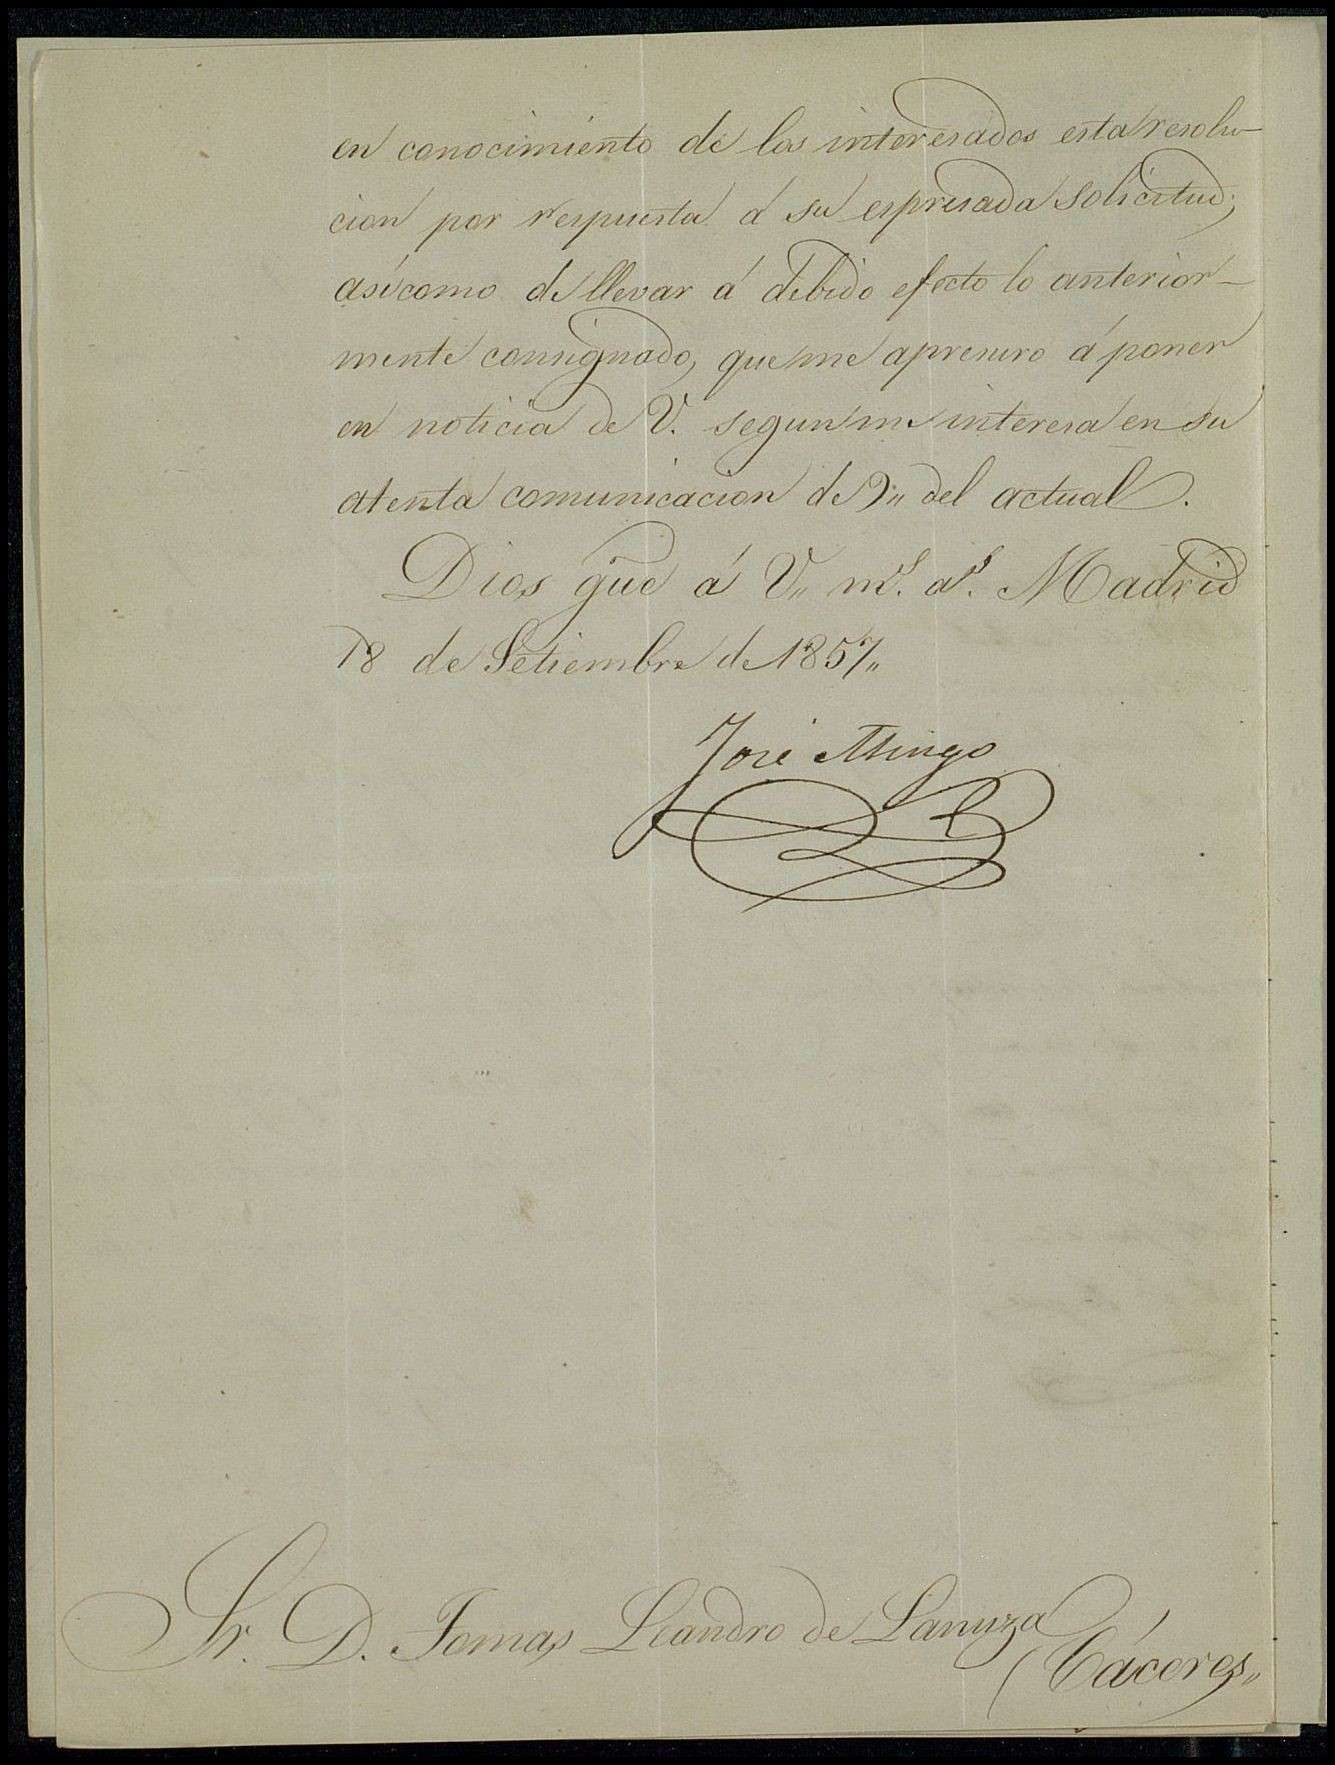 en conocimiento de los interesados esta resolu-
cion por respuesta á su espresada solicitud;
asi como de llevar á debido efecto lo anterior-
mente consignado, que me apresuro á poner
en noticia de V. segun me interesa en su
atenta comunicacion de 9,, del actual.
Dios gue á V,, ms. as. Madrid
18 de Setiembre de 1857,,
José Mingo
Sr. D. Tomas Leandro de Lanuza
(Cáceres,,